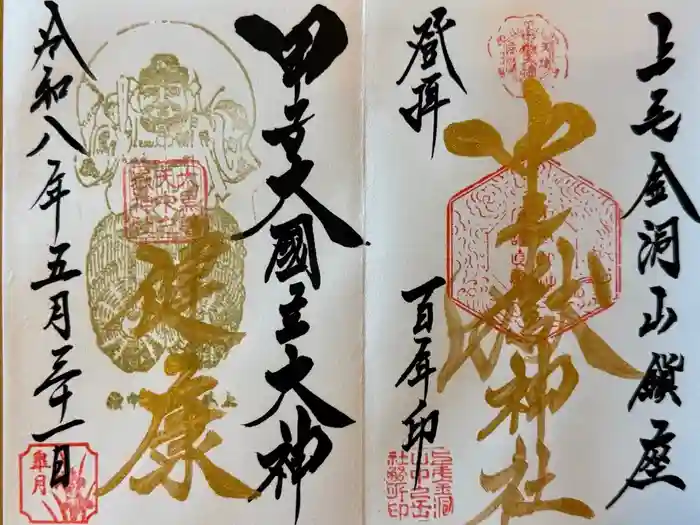 上毛金洞山鎭座
中之嶽神社
登拝
百年印
上毛金洞
山中之岳
社務所印
甲子大國主大神
健康
令和八年五月三十一日
皐月